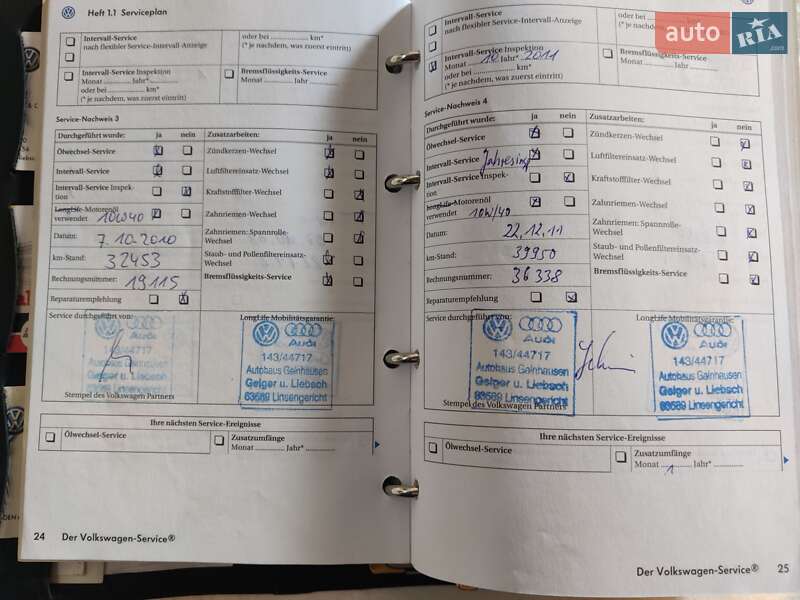 Heft 1.1 Serviceplan
Intervall-Service
nach flexibler Service-Intervall-Anzeige
oder bei ............... km*
(* je nachdem, was zuerst eintritt)
Intervall-Service Inspektion
Monat ............ Jahr* ............
oder bei ............... km*
(* je nachdem, was zuerst eintritt)
Bremsflüssigkeits-Service
Monat ............ Jahr ............
Service-Nachweis 3
Durchgeführt wurde: ja nein
Zusatzarbeiten: ja nein
Ölwechsel-Service
Intervall-Service
Intervall-Service Inspek-
tion
LongLife-Motorenöl
verwendet 10W40
Datum: 7.10.2010
km-Stand: 32453
Rechnungsnummer: 19115
Reparaturempfehlung
Zündkerzen-Wechsel
Luftfiltereinsatz-Wechsel
Kraftstofffilter-Wechsel
Zahnriemen-Wechsel
Zahnriemen: Spannrolle-
Wechsel
Staub- und Pollenfiltereinsatz-
Wechsel
Bremsflüssigkeits-Service
Service durchgeführt von:
Audi
143/44717
Autohaus Gelnhausen
Geiger u. Liebsch
Stempel des Volkswagen Partners
LongLife Mobilitätsgarantie:
Audi
143/44717
Autohaus Gelnhausen
Geiger u. Liebsch
63589 Linsengericht
Ihre nächsten Service-Ereignisse
Ölwechsel-Service
Zusatzumfänge
Monat ............ Jahr* ............
24 Der Volkswagen-Service®
Intervall-Service
nach flexibler Service-Intervall-Anzeige
oder bei ............... km*
(* je nachdem, was zuerst eintritt)
Intervall-Service Inspektion
Monat 10 Jahr* 2011
oder bei ............... km*
(* je nachdem, was zuerst eintritt)
Bremsflüssigkeits-Service
Monat ............ Jahr ............
auto RIA
.com
Service-Nachweis 4
Durchgeführt wurde: ja nein
Zusatzarbeiten: ja nein
Ölwechsel-Service
Intervall-Service
Intervall-Service Inspek-
tion
LongLife-Motorenöl
verwendet 10W/40
Datum: 22.12.11
km-Stand: 39950
Rechnungsnummer: 36338
Reparaturempfehlung
Zündkerzen-Wechsel
Luftfiltereinsatz-Wechsel
Kraftstofffilter-Wechsel
Zahnriemen-Wechsel
Zahnriemen: Spannrolle-
Wechsel
Staub- und Pollenfiltereinsatz-
Wechsel
Bremsflüssigkeits-Service
Service durchgeführt von:
Audi
143/44717
Autohaus Gelnhausen
Geiger u. Liebsch
63589 Linsengericht
Stempel des Volkswagen Partners
LongLife Mobilitätsgarantie:
Audi
143/44717
Autohaus Gelnhausen
Geiger u. Liebsch
63589 Linsengericht
Ihre nächsten Service-Ereignisse
Ölwechsel-Service
Zusatzumfänge
Monat ............ Jahr* ............
Der Volkswagen-Service® 25